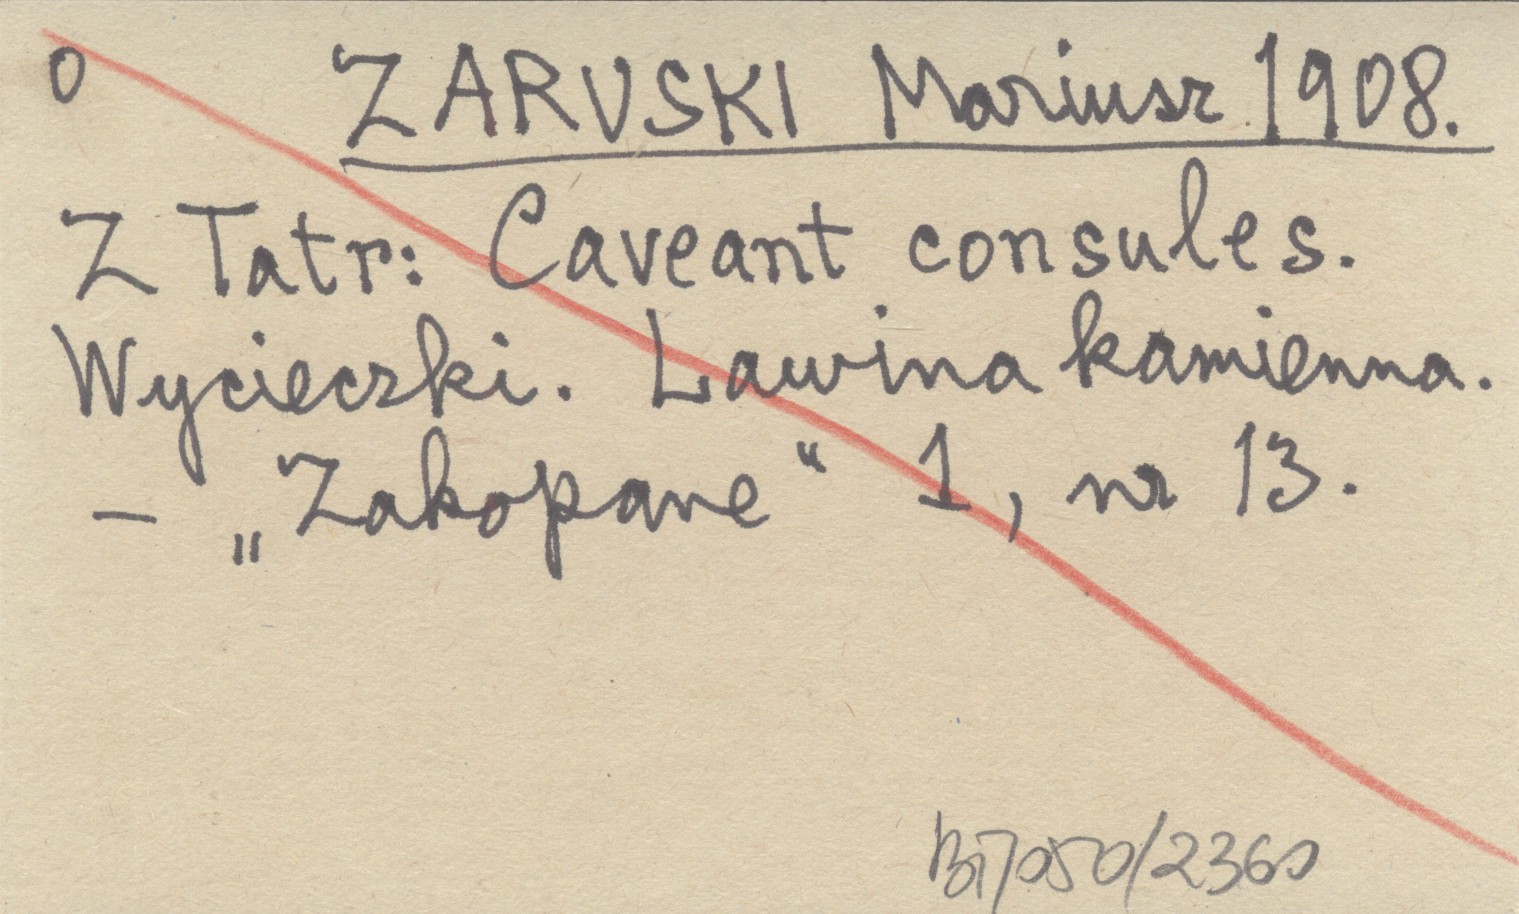 o ZARUSKI Mariusz 1908.
Z Tatr: Caveant consules.
Wycieczki. Lawina kamienna.
- „Zakopane“ 1, nr 13.
BT/050/2360